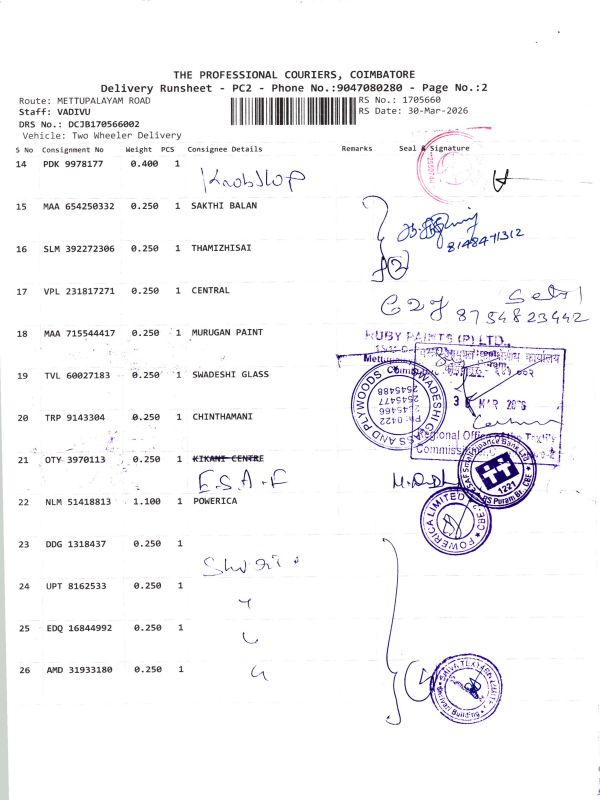 THE PROFESSIONAL COURIERS, COIMBATORE
Delivery Runsheet - PC2 - Phone No.:9047080280 - Page No.:2
Route: METTUPALAYAM ROAD
RS No.: 1705660
Staff: VADIVU
RS Date: 30-Mar-2026
DRS No.: DCJB170566002
Vehicle: Two Wheeler Delivery
S No Consignment No Weight PCS Consignee Details Remarks Seal & Signature
14 PDK 9978177 0.400 1
15 MAA 654250332 0.250 1 SAKTHI BALAN
8148471312
16 SLM 392272306 0.250 1 THAMIZHISAI
2
17 VPL 231817271 0.250 1 CENTRAL
8754823442
18 MAA 715544417 0.250 1 MURUGAN PAINT
RUBY PAINTS (P) LTD.,
19 TVL 60027183 0.250 1 SWADESHI GLASS
SWADESHI GLASS AND PLYWOODS
20 TRP 9143304 0.250 1 CHINTHAMANI
Regional Office of the Textile
Commissioner
21 OTY 3970113 0.250 1 KIKANI CENTRE
E.S.A.F
1221
RS Puram Br. CBE
22 NLM 51418813 1.100 1 POWERICA
POWERICA LIMITED CBE
23 DDG 1318437 0.250 1
24 UPT 8162533 0.250 1
25 EDQ 16844992 0.250 1
26 AMD 31933180 0.250 1